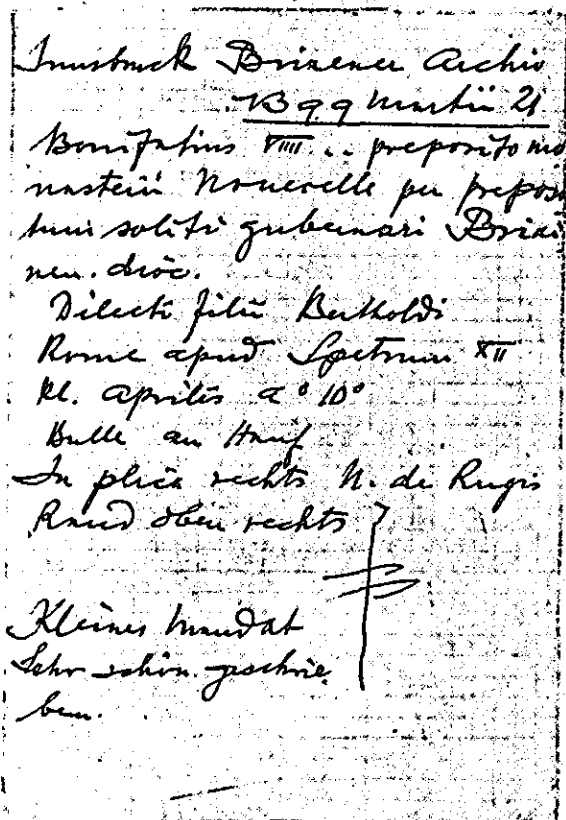 Innsbruck Brixener Archiv
1399 Martii 21
Bonifatius VIIII .. preposito mo
nasterii Novecelle per prepos
itum soliti gubernari Brixi
nen. dioc.
Dilecti filii Bertholdi
Rome apud Spetrum XII
kl. aprilis a° 10°
Bulle an Hanf
In plica rechts N. de Rugis
Rand oben rechts
Kleines Mandat
Sehr schön geschrie
ben.